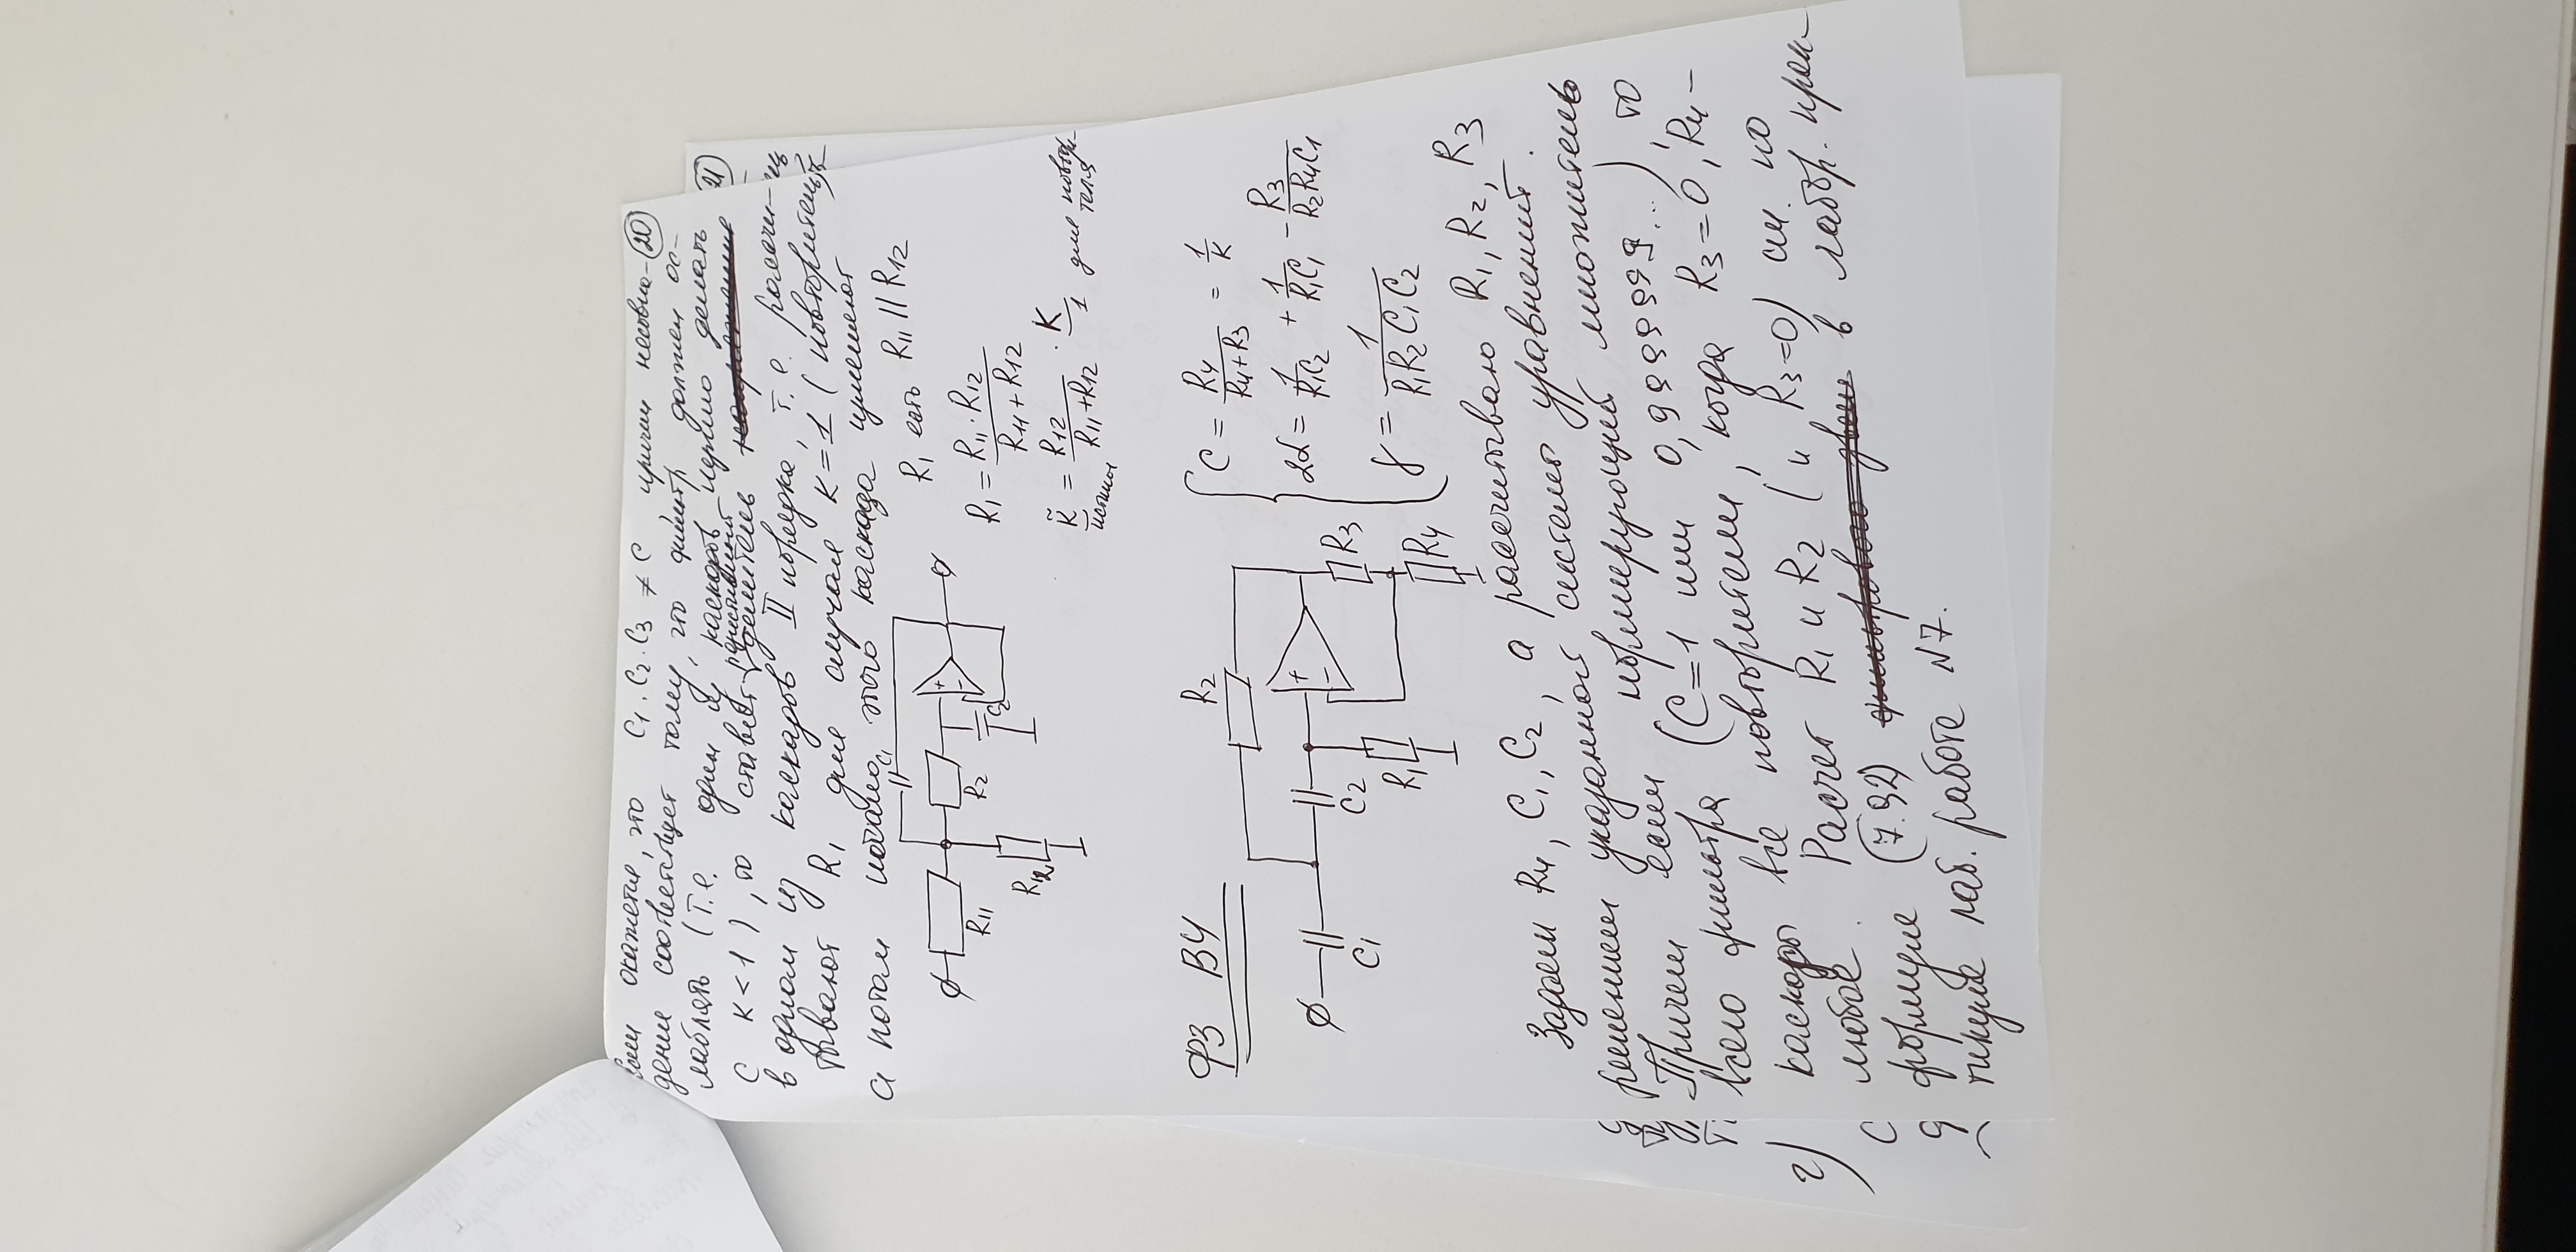 Если окажется, что C1 · C2 · C3 ≠ C, причем несовпа- 20
дение соответствует тому, что фильтр должен ос-
лаблять (т.е. один из каскадов нужно делать
с K < 1), то ставят резистивный делитель
в одном из каскадов II порядка, т.е. рассчи-
тывают R1 для случая K = 1 (повторитель),
а потом начало этого каскада изменяют
C1
R11 R2 + − C2
R12
R1 есть R11 || R12
R1 = R11 · R12 / R11 + R12
K̃ = R12 / R11 + R12 · K / 1 для повтори-
теля
21
ФЗ ВЧ
R2
C1 C2 + −
R1 R3
R4
C = R4 / R4 + R3 = 1 / K
2α = 1 / R1C2 + 1 / R1C1 − R3 / R2R4C1
γ = 1 / R1R2C1C2
Задаем R4, C1, C2, а рассчитываю R1, R2, R3
решением указанной системы уравнений.
Причем если нормирующий множитель
всего фильтра (C=1 или 0,9999999...), то
каскады все повторители, когда R3=0, R4 –
любое. Расчет R1 и R2 (и R3=0) см. по
формуле (7.92) в лабор. прак-
тикуме лаб. работе N7.
г)